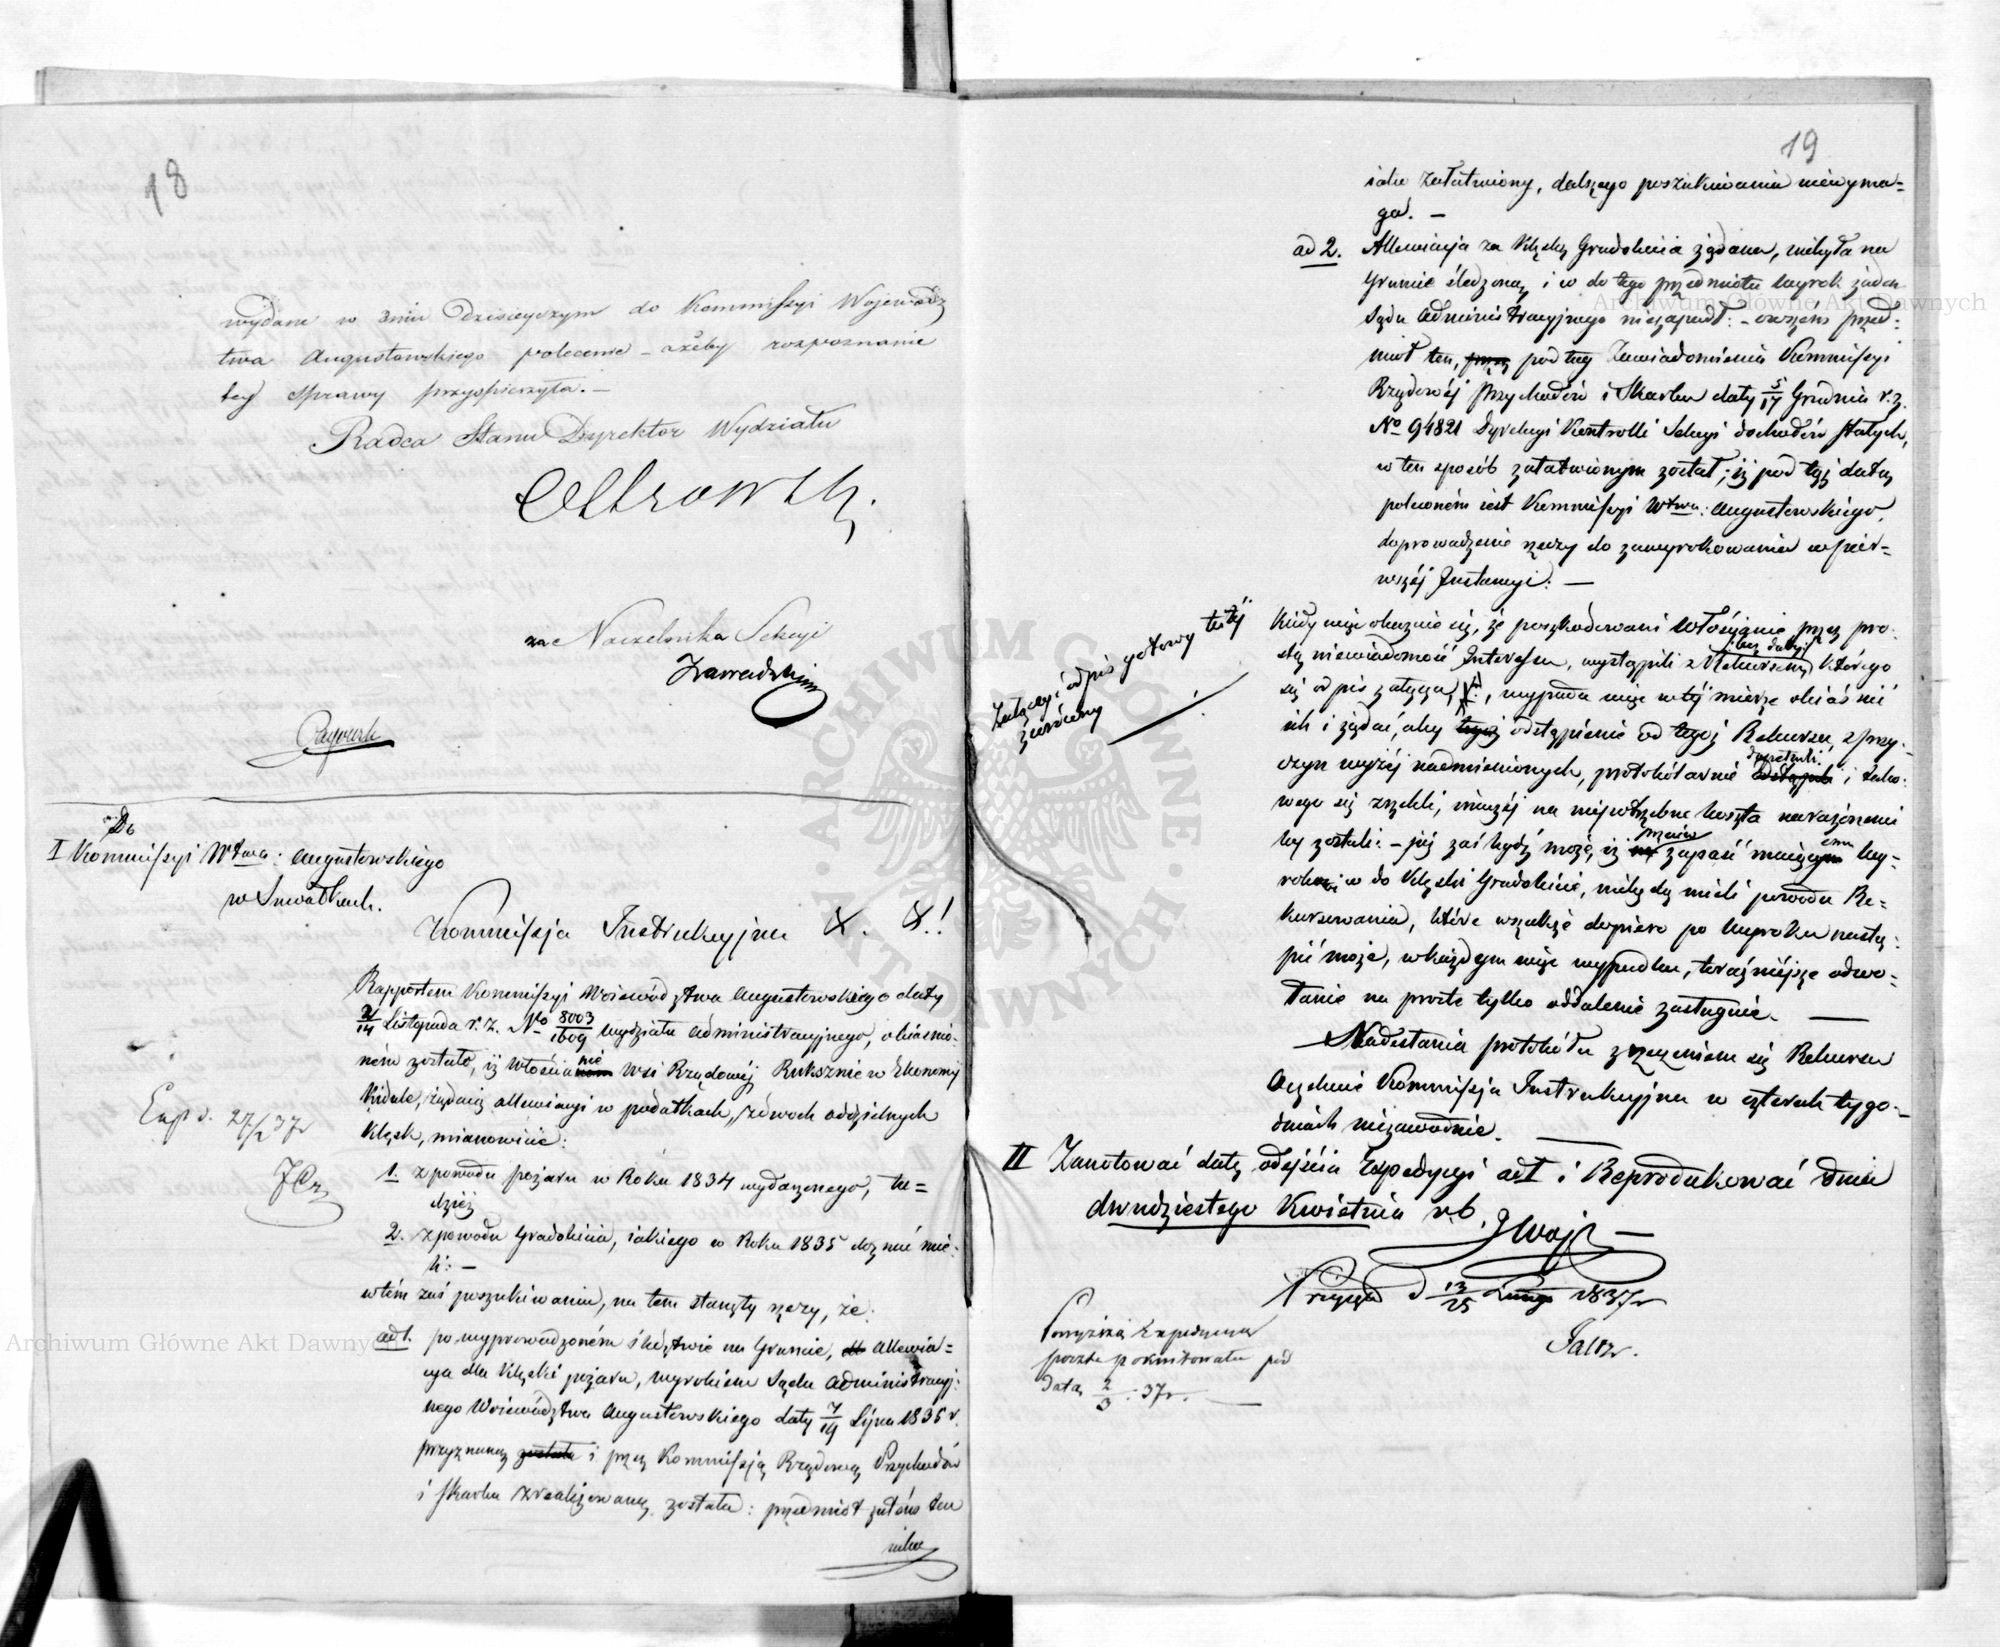 18
wydane w dniu Dzisieyszym do Kommissyi Wojewódz
twa Augustowskiego polecenie - ażeby rozpoznanie
tey Sprawy przyspieszyła. —
Radca Stanu Dyrektor Wydziału
za Naczelnika Sekcyi
Zawadzki
Do
I Kommissyi Wtwa: Augustowskiego
w Suwałkach.
Kommissja Instrukcyjna
Rapportem Kommissyi Województwa Augustowskiego daty
2/14 Listopada r. z. No 8003/1609 wydziału administracyjnego, obiaśnio-
ném zostało, iż Włościanie Wsi Rządowéj Ruksznie w Ekonomij
Kidule, żądają allewiacyi w podatkach, z dwoch oddzielnych
Klęsk, mianowicie:
1. z powodu pożaru w Roku 1834 wydarzonego, tu=
dzież
2. z powodu Gradobicia, iakiego w Roku 1835 doznać mie-
li: —
w tém zaś poszukiwaniu, na tem stanęły rzeczy, że:
ad 1. po wyprowadzoném śledztwie na Gruncie, Allewia=
cya dla Klęski pożaru, wyrokiem Sądu Administracyj-
nego Województwa Augustowskiego daty 7/19 Lipca 1835 r.
przyznaną została i przez Kommissją Rządową Przychodów
i Skarbu zrealizowaną została: przedmiot zatém ten
iako
Exp d. 27/2 37r
19
iako załatwiony, dalszego poszukiwania niewyma=
ga. —
ad 2. Allewiacja za Klęskę Gradobicia żądana, niebyła na
Gruncie śledzoną, i w do tego przedmiotu wyrok żaden
Sądu Administracyjnego niezapadł: - owszem przed-
miot ten, pod tey Zawiadomienia Kommissyi
Rządowéj Przychodów i Skarbu daty 5/17 Grudnia r. z.
No 94821 Dyrekcyi Kontrolli Sekcyi dochodów stałych,
w ten sposób załatwionym został; iż pod tęż datą
poleconém iest Kommissyi Wtwa: Augustowskiego,
doprowadzenie rzeczy do zawyrokowania w pier-
wszéj Instancyi: —
Kiedy więc okazuie się, że poszkodowani Włościanie przez pro-
stą niewiadomość Interessu, wystąpili z Rekursem bez daty, którego
się odpis załącza, wypada więc w téj mierze obiaśnić
ich i żądać, aby odstąpienie od tegoż Rekursu, z przy-
czyn wyżéj nadmienionych, protokólarnie dopełnili i tako-
wego się zrzekli, inaczéj na niepotrzebne koszta narażonemi
by zostali: - jéj zaś bydź może, iż zapaść maiącemu Wy-
rokowi w do Klęski Gradobicia, niebędą mieli powodu Re-
kursowania, które wszakże dopiero po Wyroku nastą-
pić może, w każdym więc wypadku, teraźnieysze odwo-
łanie na proste tylko oddalenie zasługuie. —
Nadesłania protokółu z zrzeczeniem się Rekursu
Oczekuie Kommissja Instrukcyjna w czterech tygo-
dniach niezawodnie. —
załączyć odpis gotowy tutéj
zwrócony
II Zanotować datę odejścia Expedycyi ad I i Reprodukować dnia
dwudziestego Kwietnia r. b.
Przejrzał d 13/25 Lutego 1837r
Powyższą Expedycyą
poczta pokwitowała pod
datą 2/3 37r. —